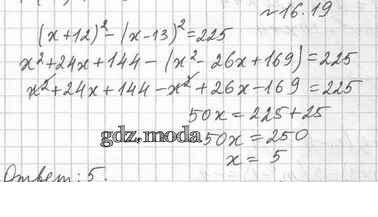 №16.19
(x+12)²-(x-13)²=225
x²+24x+144-(x²-26x+169)=225
x²+24x+144-x²+26x-169=225
50x=225+25
gdz.moda 50x=250
x=5
Ответ: 5.